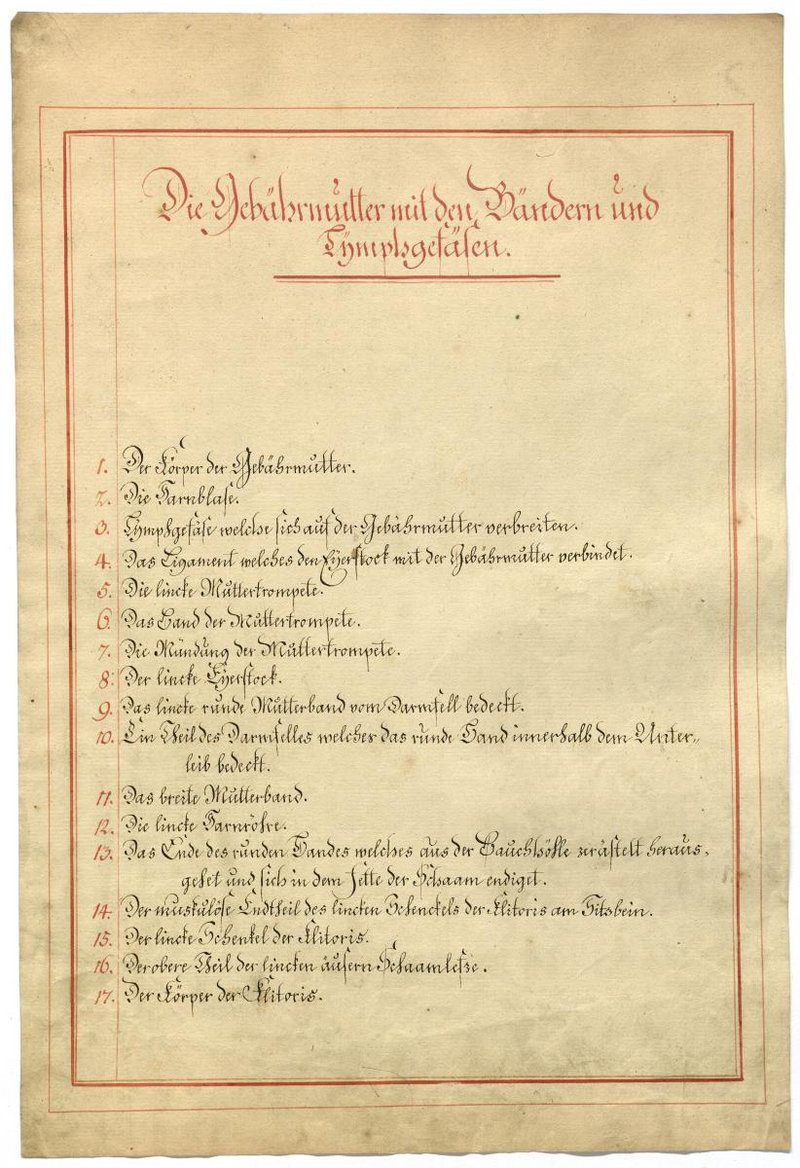 Die Gebährmutter mit den Bändern und
Lÿmphgefäsen.
1. Der Körper der Gebährmutter.
2. Die Harnblase.
3. Lÿmphgefäse welche sich auf der Gebährmutter verbreiten.
4. Das Ligament welches den Eÿerstock mit der Gebährmutter verbindet.
5. Die lincke Muttertrompete.
6. Das Band der Muttertrompete.
7. Die Mündung der Muttertrompete.
8. Der lincke Eÿerstock.
9. Das lincke runde Mutterband vom Darmfell bedeckt.
10. Ein Theil des Darmfelles welches das runde Band innerhalb dem Unter„
leib bedeckt.
11. Das breite Mutterband.
12. Die lincke Harnröhre.
13. Das Ende des runden Bandes welches aus der Bauchhöhle zerästelt heraus„
gehet und sich in dem Fette der Schaam endiget.
14. Der muskulöse Endtheil des lincken Schenckels der Klitoris am Sitzbein.
15. Der lincke Schenkel der Klitoris.
16. Der obere Theil der lincken äusern Schaamlefze.
17. Der Körper der Klitoris.